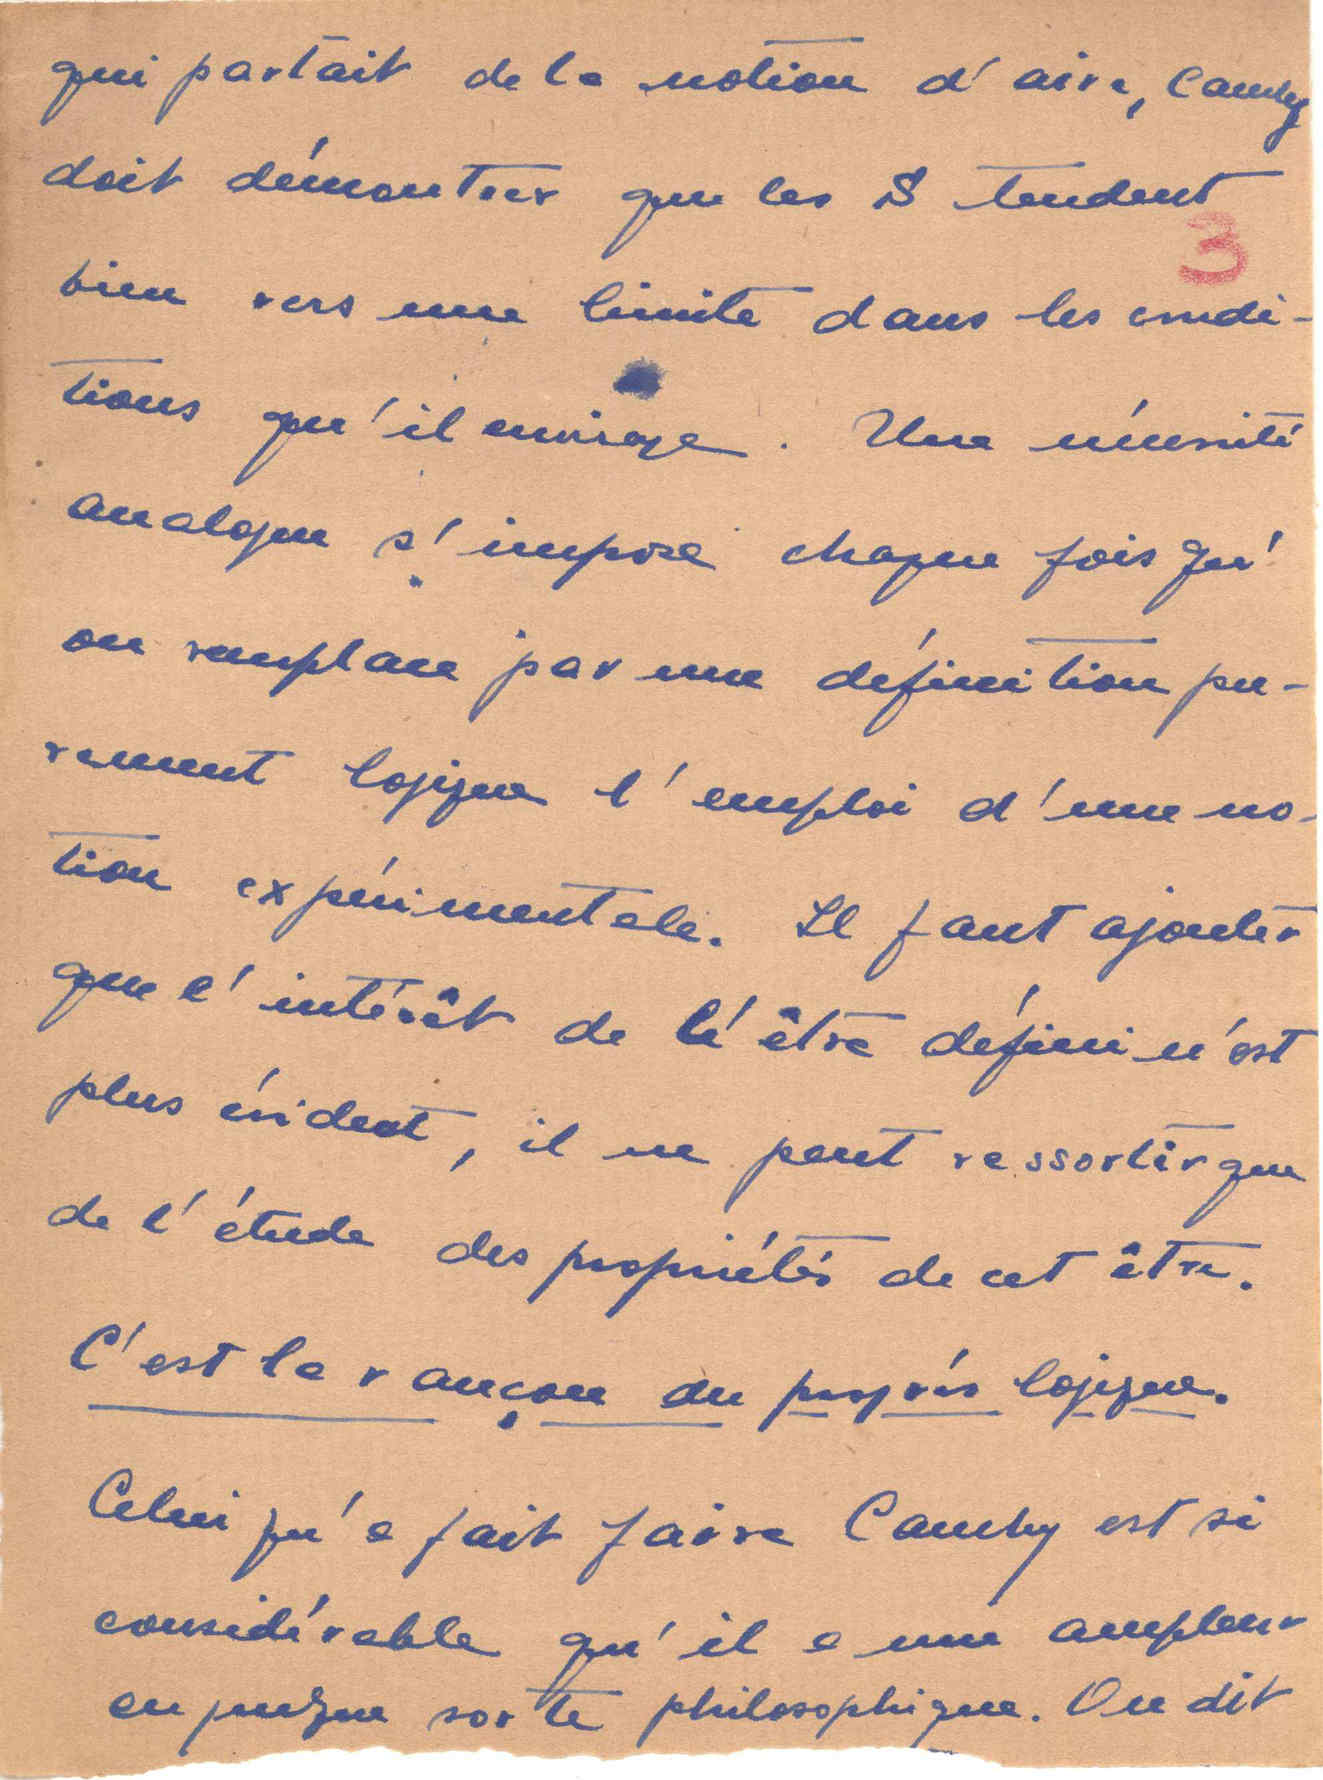 qui partait de la notion d'aire, Cauchy
doit démontrer que les S tendent
3
bien vers une limite dans les condi-
tions qu'il envisage. Une nécessité
analogue s'impose chaque fois qu'
on remplace par une définition pu-
rement logique l'emploi d'une no-
tion expérimentale. Il faut ajouter
que l'intérêt de l'être défini n'est
plus évident, il ne peut ressortir que
de l'étude des propriétés de cet être.
C'est la rançon du progrès logique.
Celui qu'a fait faire Cauchy est si
considérable qu'il a une ampleur
en quelque sorte philosophique. On dit